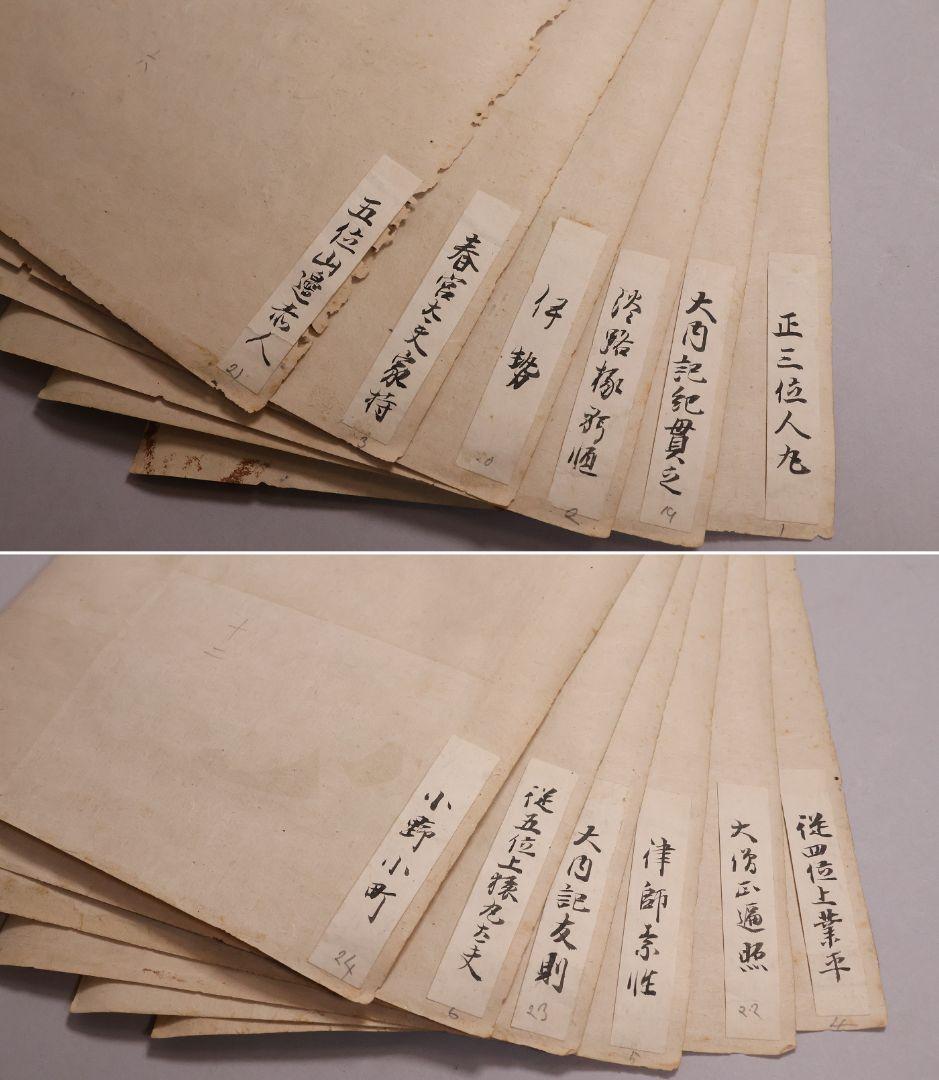 六
正三位人丸
1
大内記紀貫之
19
淡路掾躬恒
2
伊勢
20
春宮大夫家持
3
五位山邊赤人
21
十二
従四位上業平
4
大僧正遍照
22
律師素性
5
大内記友則
23
従五位上猿丸大夫
6
小野小町
24